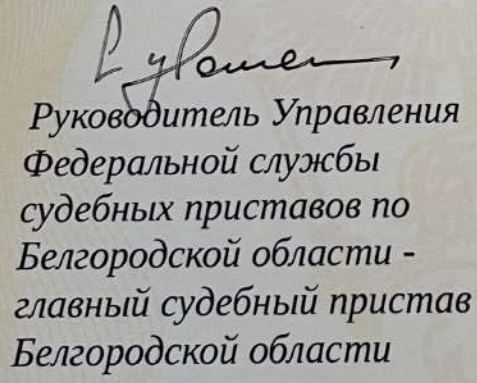 Руководитель Управления
Федеральной службы
судебных приставов по
Белгородской области -
главный судебный пристав
Белгородской области